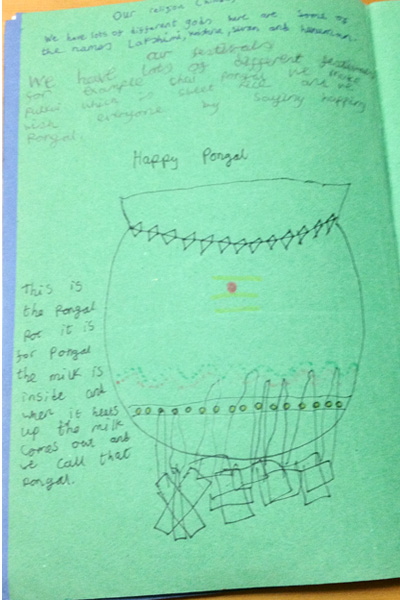 Our religon
We have lots of different gods here are some of
the names Lakshmi, and hanuman.
our festerals
We have lots of different
for example thai pongal We make
which is sweet rice and we
wish everyone by saying happy
Pongal.
Happy Pongal
This is
the Pongal
Pot it is
for Pongal
the milk is
inside and
when it heats
up the milk
comes out and
we call that
Pongal.